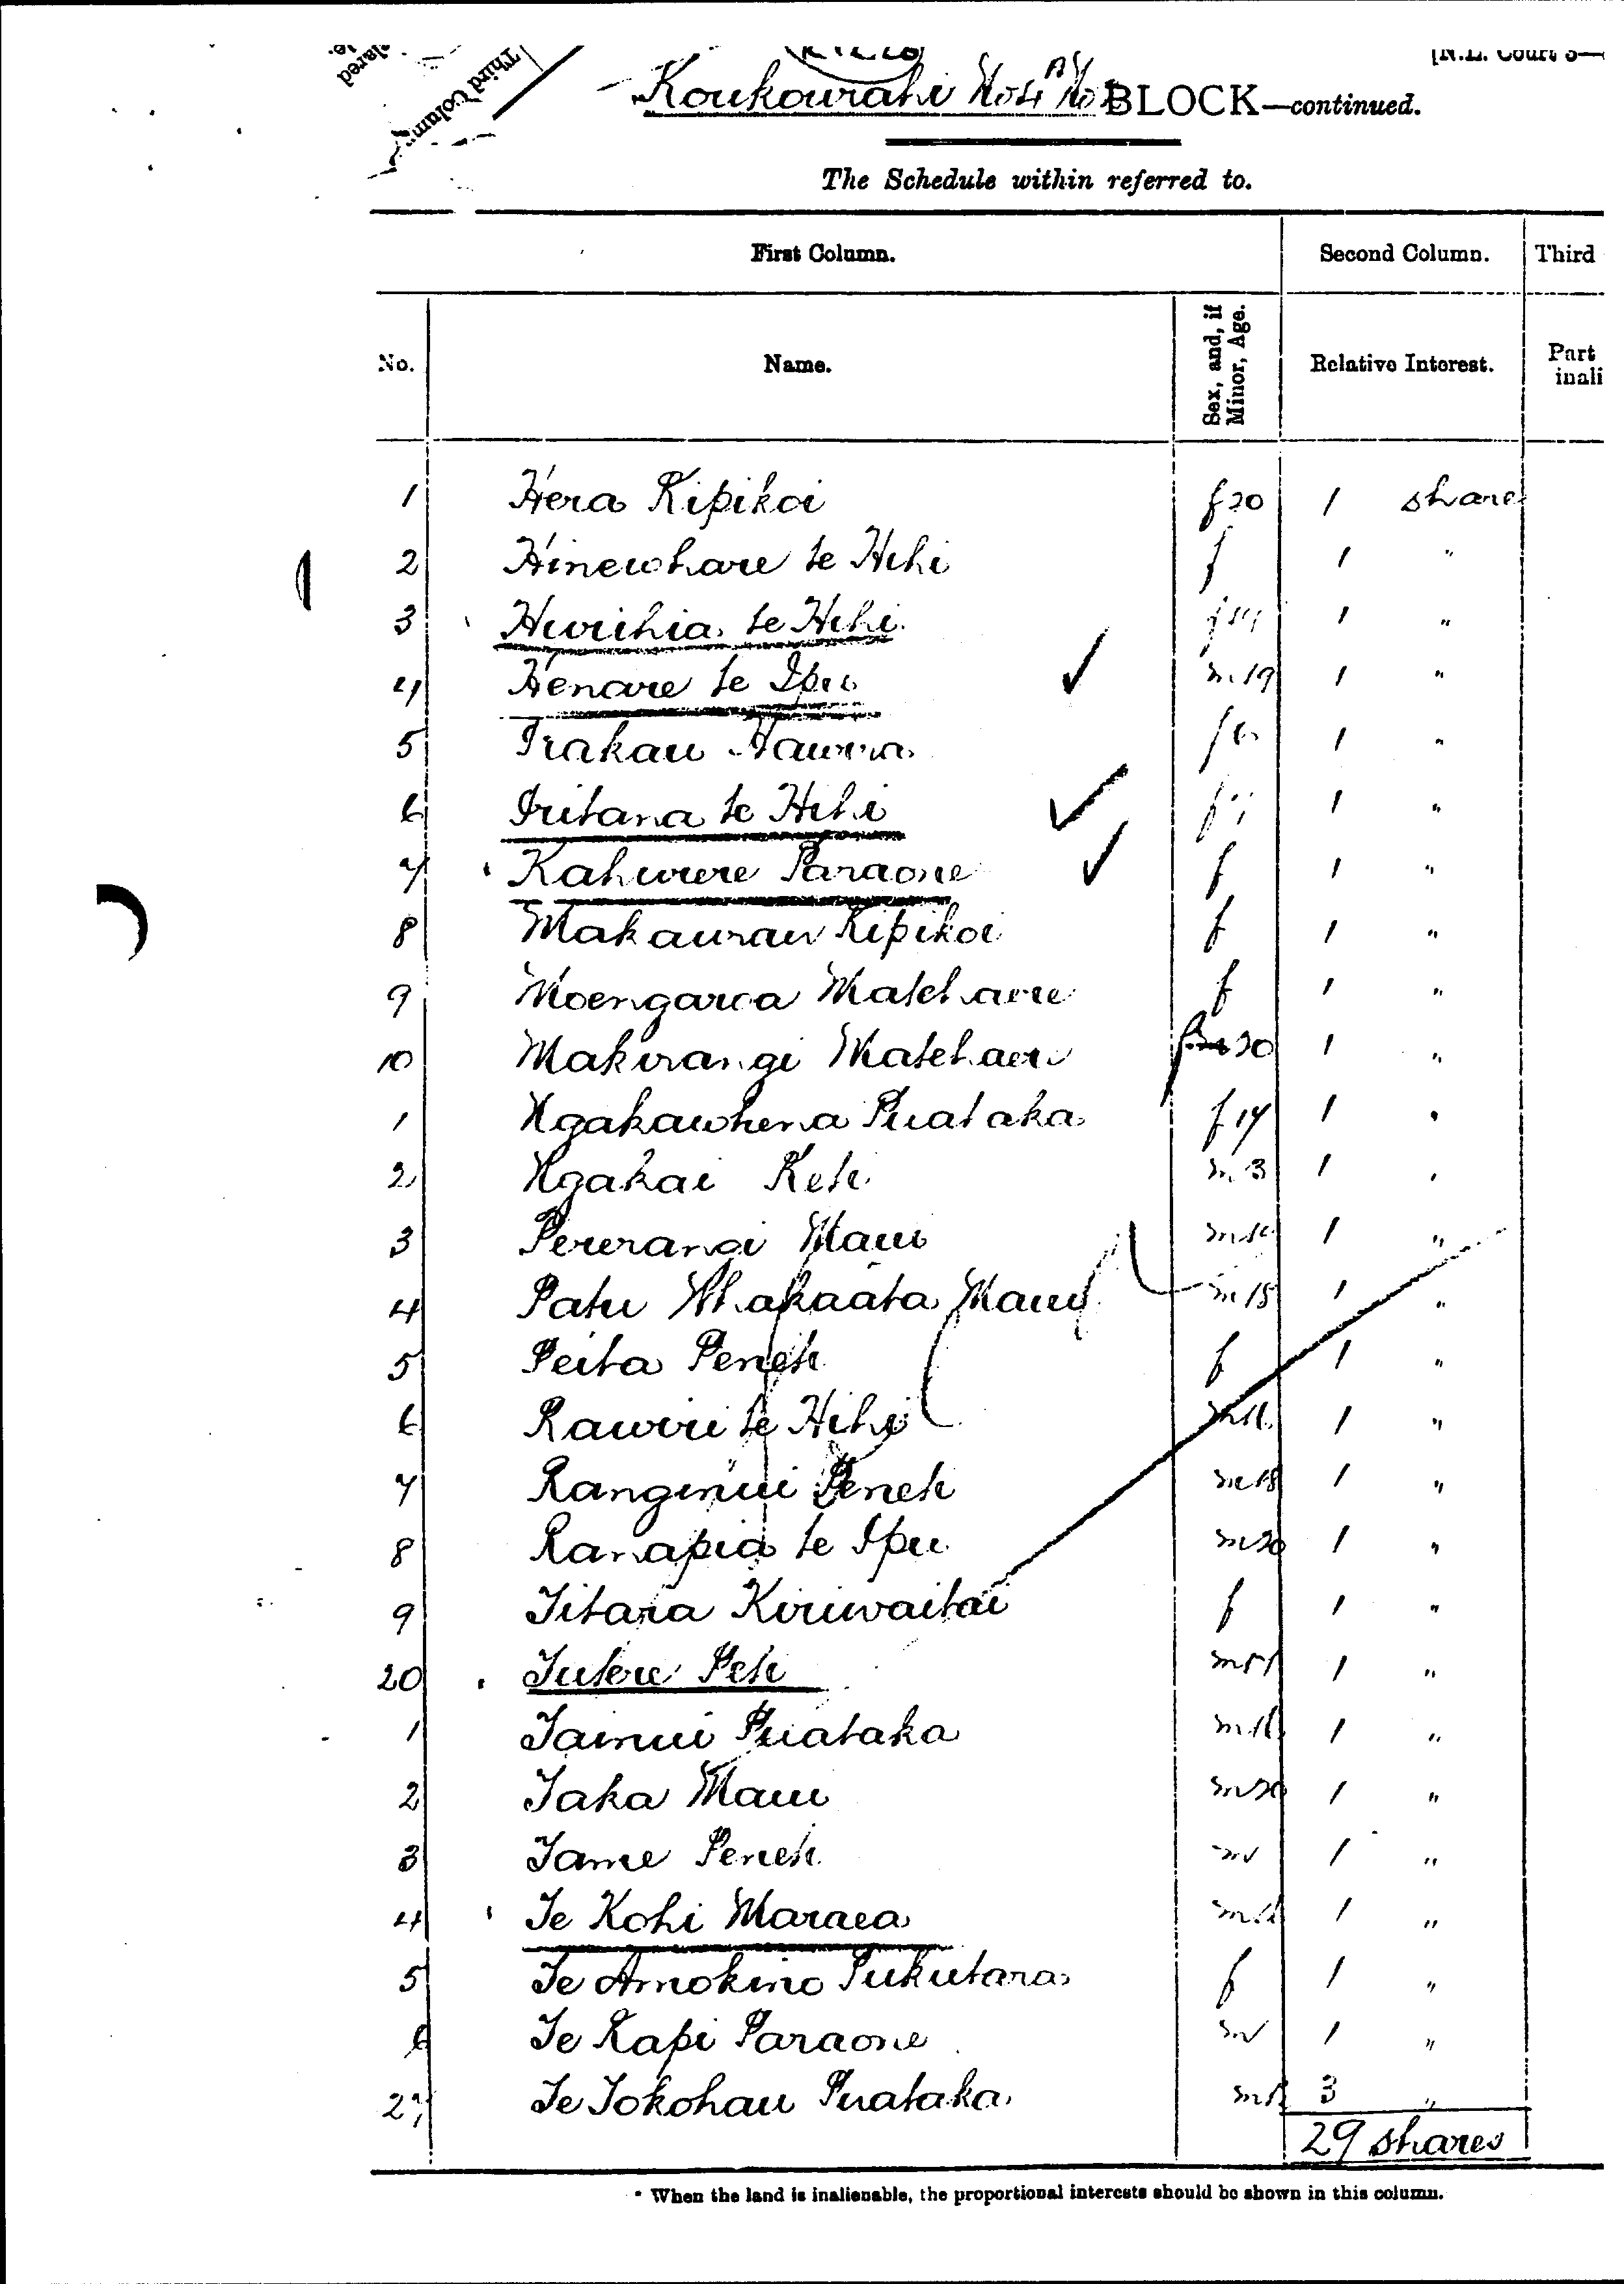 Third Column
lared
[N.L. Court 3—
Koukourahi No 4 A No BLOCK—continued.
The Schedule within referred to.
First Column. Second Column. Third
No. Name. Sex, and, if Minor, Age. Relative Interest. Part inali
1 Hera Kipikoi f 20 1 share
2 Hinewhare te Hihi f 1 "
3 Hurihia te Hihi f 1 "
4 Henare te Ipu m 19 1 "
5 Irakau f 1 "
6 Iritana te Hihi f 1 "
7 Kahurere Paraone f 1 "
8 Makaurau Kipikoi f 1 "
9 Moengaroa Matehaere f 1 "
10 Makirangi Matehaere f 20 1 "
1 Ngakawhena Puataka f 17 1 "
2 Ngakai Keti m 3 1 "
3 Pererangi Maui m 1 "
4 Patu Whakaata Maui m 15 1 "
5 Peita Peneti f 1 "
6 Rawiri te Hihi m 16 1 "
7 Ranginui Peneti m 18 1 "
8 Ranapia te Ipu m 20 1 "
9 Titara Kiriwaitai f 1 "
20 Tutere Peti m 1 "
1 Tainui Puataka m 16 1 "
2 Taka Maui m 20 1 "
3 Tame Peneti m 1 "
4 Te Kohi Maraea m 1 "
5 Te Amokino Pukutara f 1 "
6 Te Kapi Paraone m 1 "
27 Te Tokohau Puataka m 3 "
29 shares
* When the land is inalienable, the proportional interests should be shown in this column.